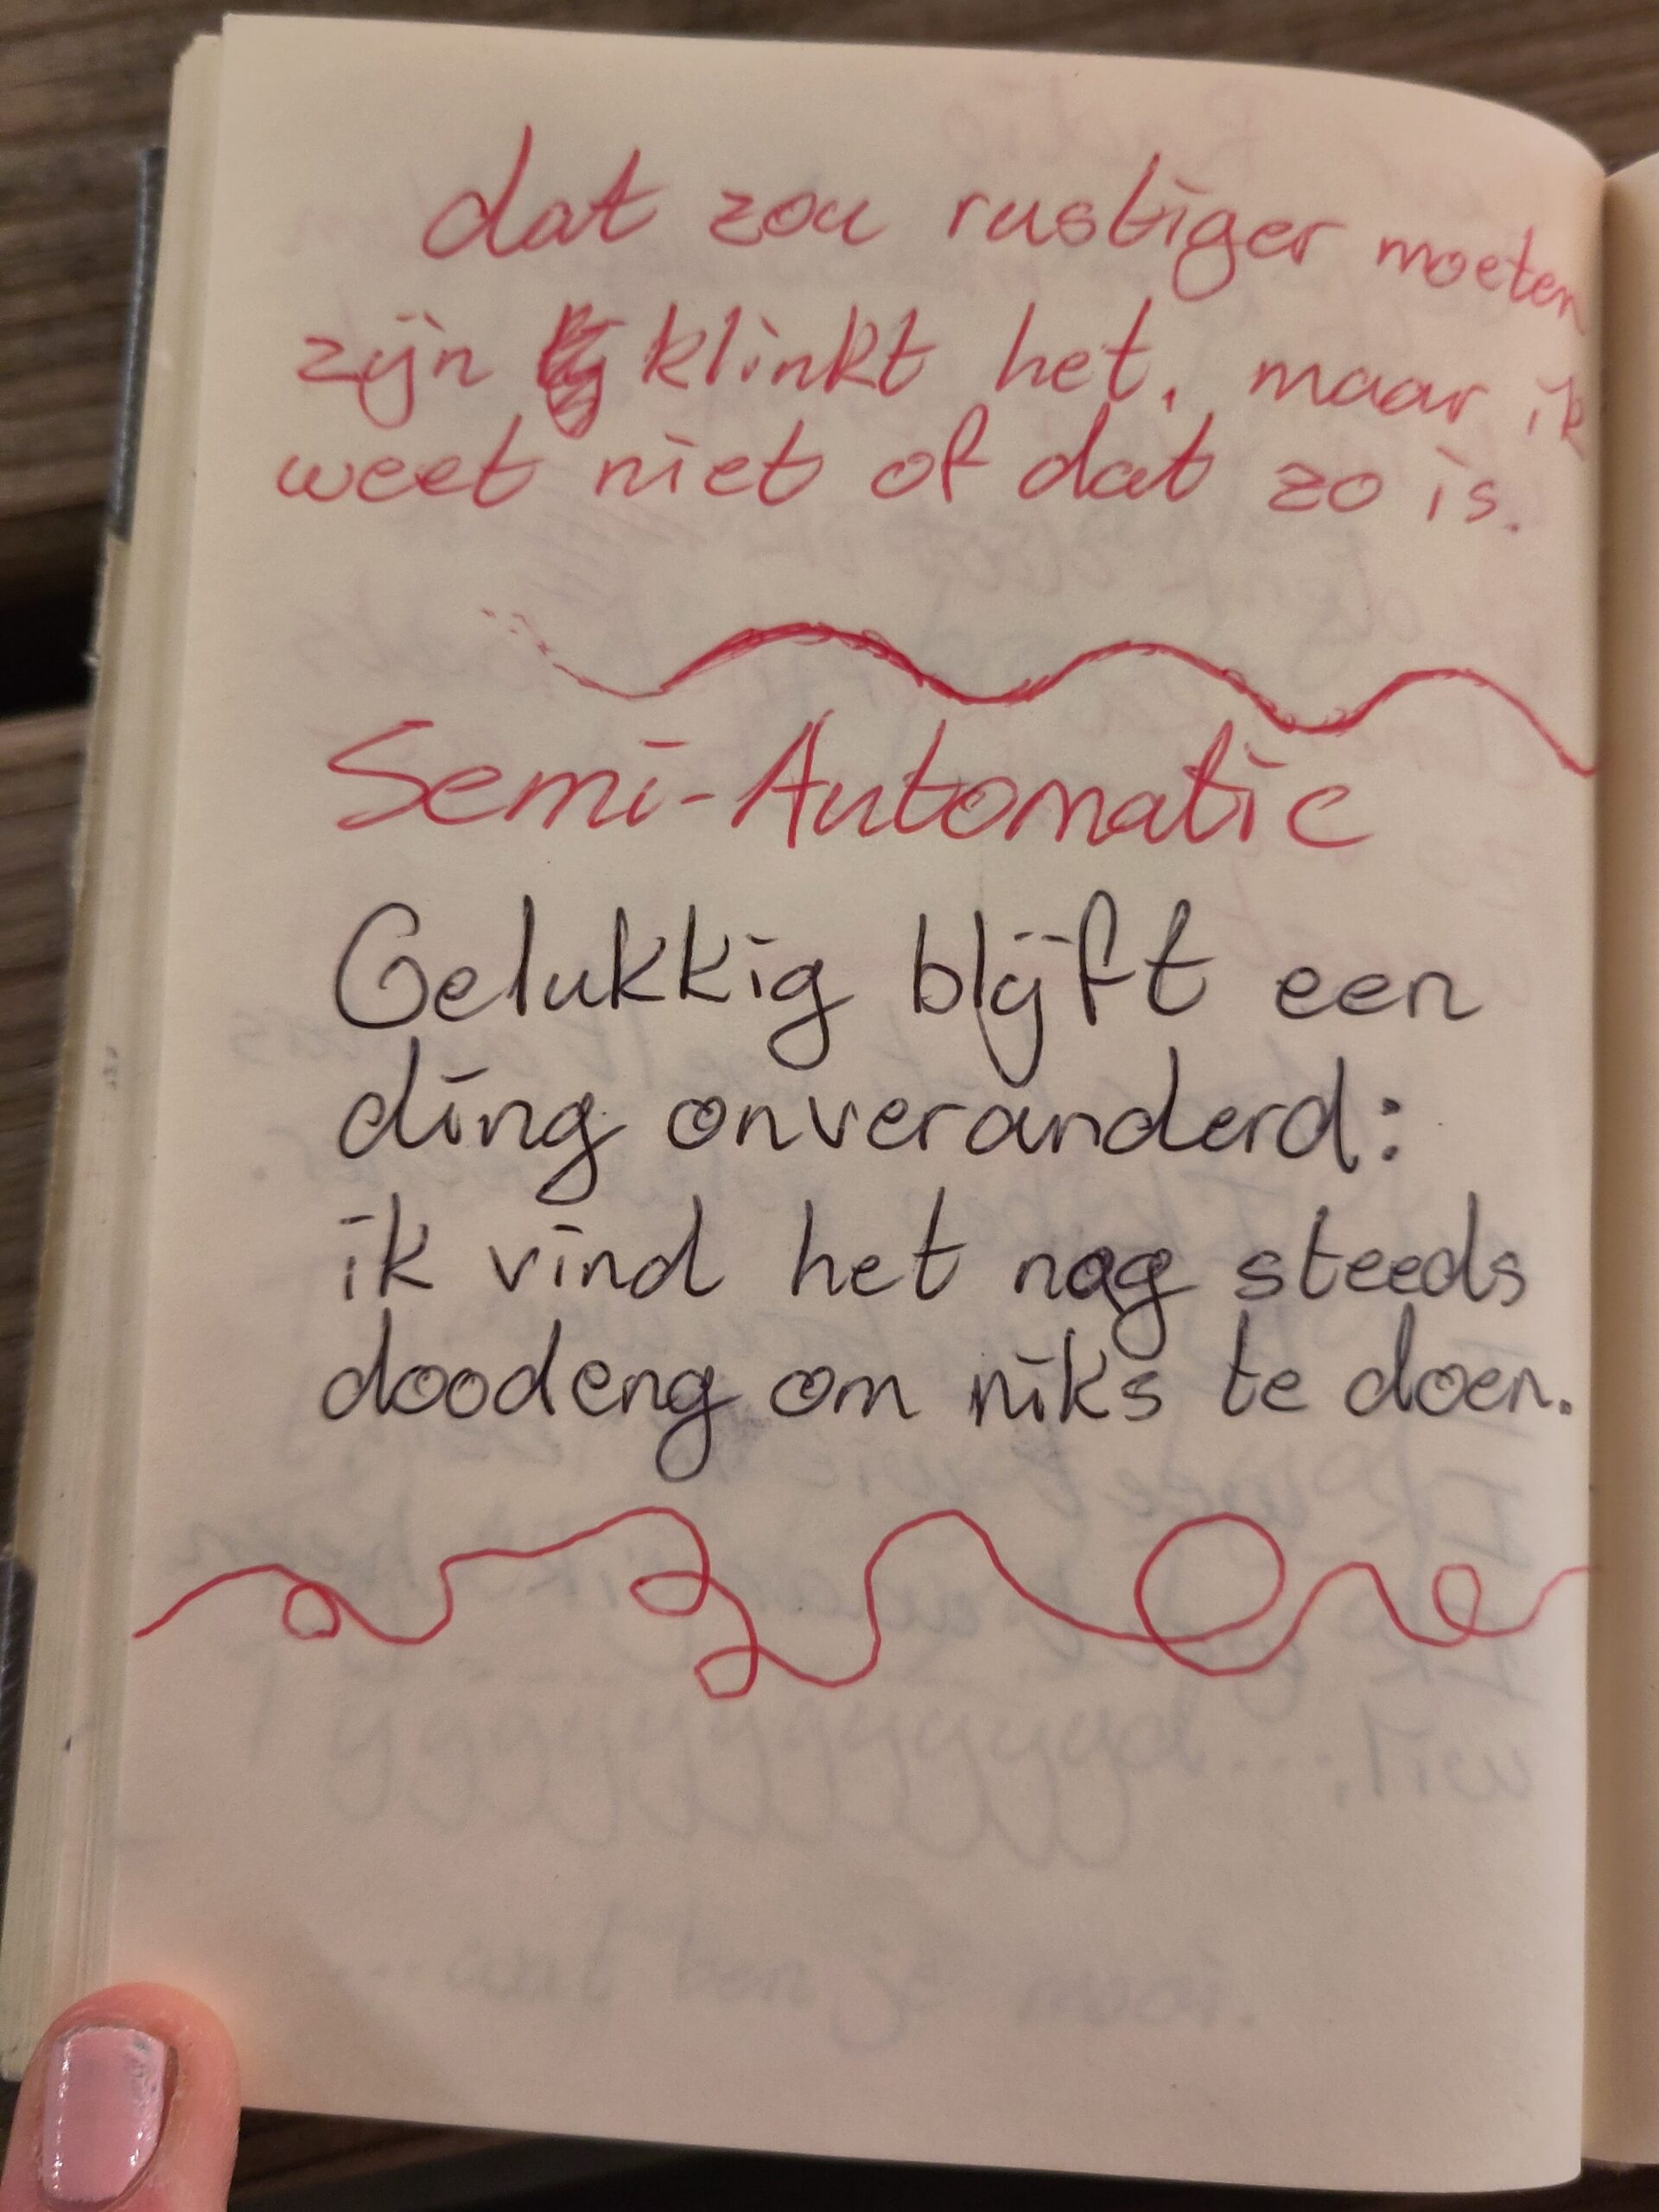 dat zou rustiger moeten
zijn klinkt het, maar ik
weet niet of dat zo is.
Semi-Automatic
Gelukkig blijft een
ding onveranderd:
ik vind het nog steeds
doodeng om niks te doen.